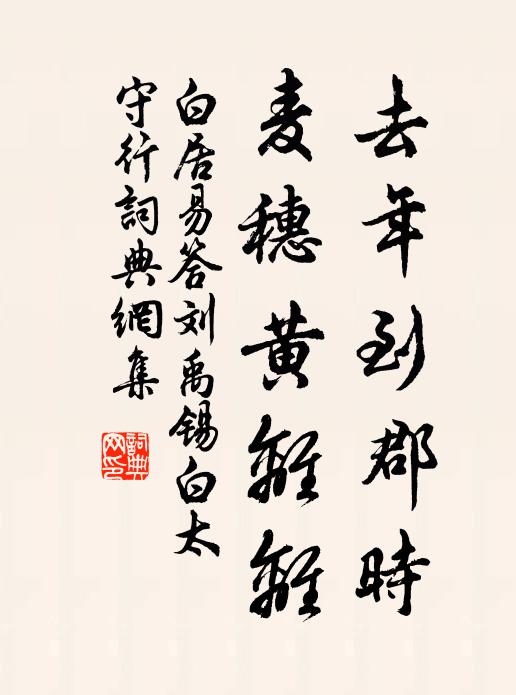 去年到郡時
麦穗黄離離
白居易答刘禹锡白太
守行詞典網集
詞典網印